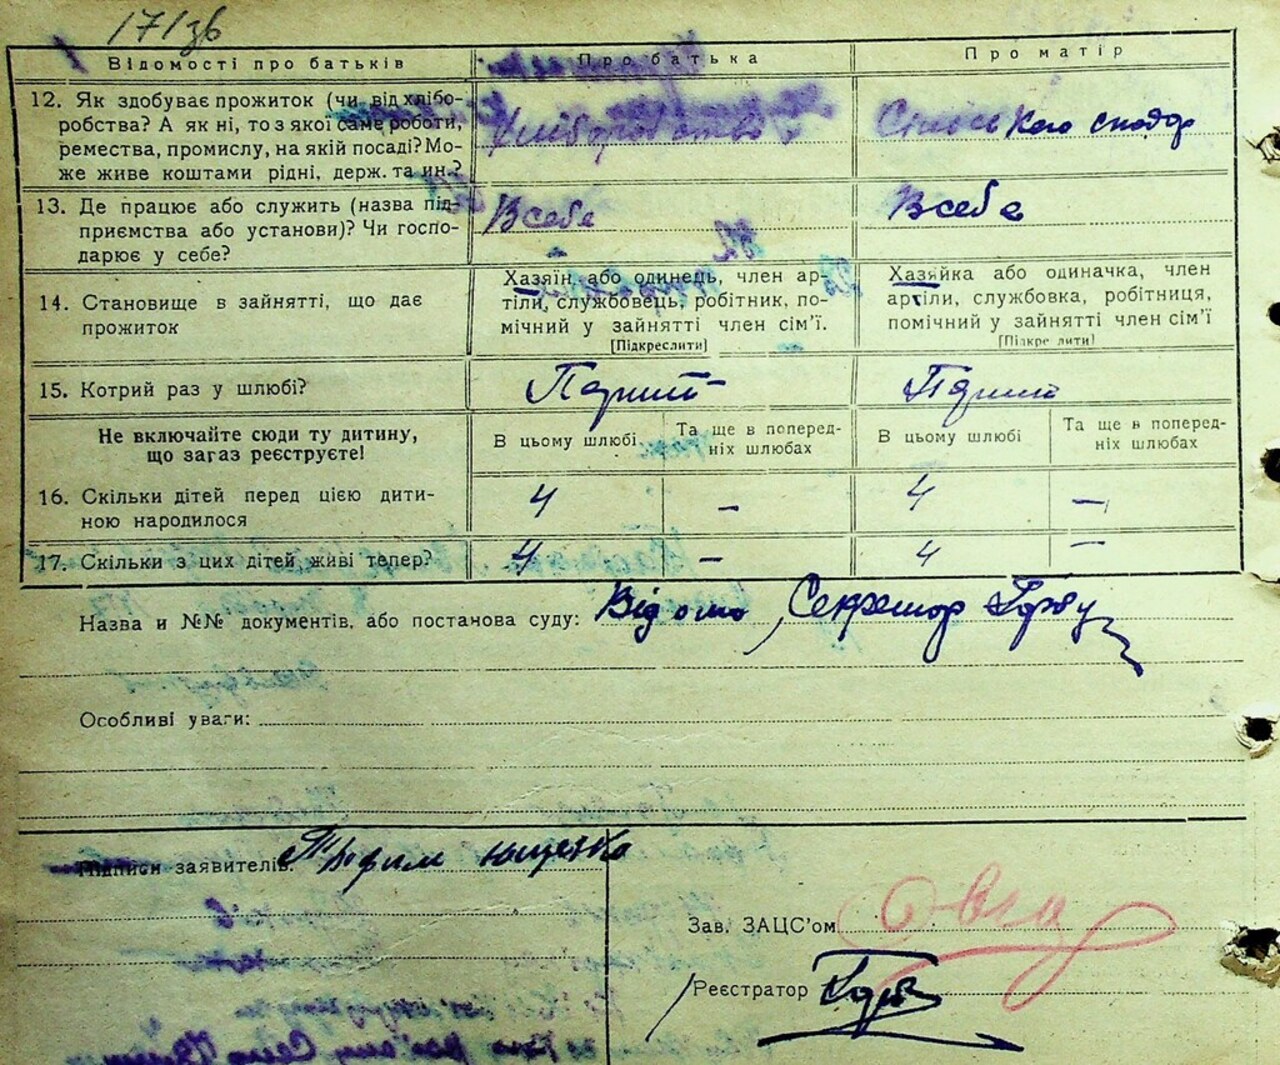 171зв
Відомості про батьків
Про батька
Про матір
12. Як здобуває прожиток (чи від хлібо-
робства? А як ні, то з якої саме роботи,
ремества, промислу, на якій посаді? Мо-
же живе коштами рідні, держ. та ин.?
Хліборобство
Сільського господар
13. Де працює або служить (назва під-
приємства або установи)? Чи госпо-
дарює у себе?
В себе
В себе
14. Становище в зайнятті, що дає
прожиток
Хазяїн або одинець, член ар-
тіли, службовець, робітник, по-
мічний у зайнятті член сім'ї.
[Підкреслити]
Хазяйка або одиначка, член
артіли, службовка, робітниця,
помічний у зайнятті член сім'ї
[Підкре лити]
15. Котрий раз у шлюбі?
Перший
Перший
Не включайте сюди ту дитину,
що загаз реєструєте!
В цьому шлюбі
Та ще в поперед-
ніх шлюбах
В цьому шлюбі
Та ще в поперед-
ніх шлюбах
16. Скільки дітей перед цією дити-
ною народилося
4
–
4
–
17. Скільки з цих дітей живі тепер?
4
–
4
–
Назва и №№ документів, або постанова суду: Відомо, Секретар
Особливі уваги:
Підписи заявителів: Трофим Ющенко
Зав. ЗАЦС'ом
Реєстратор